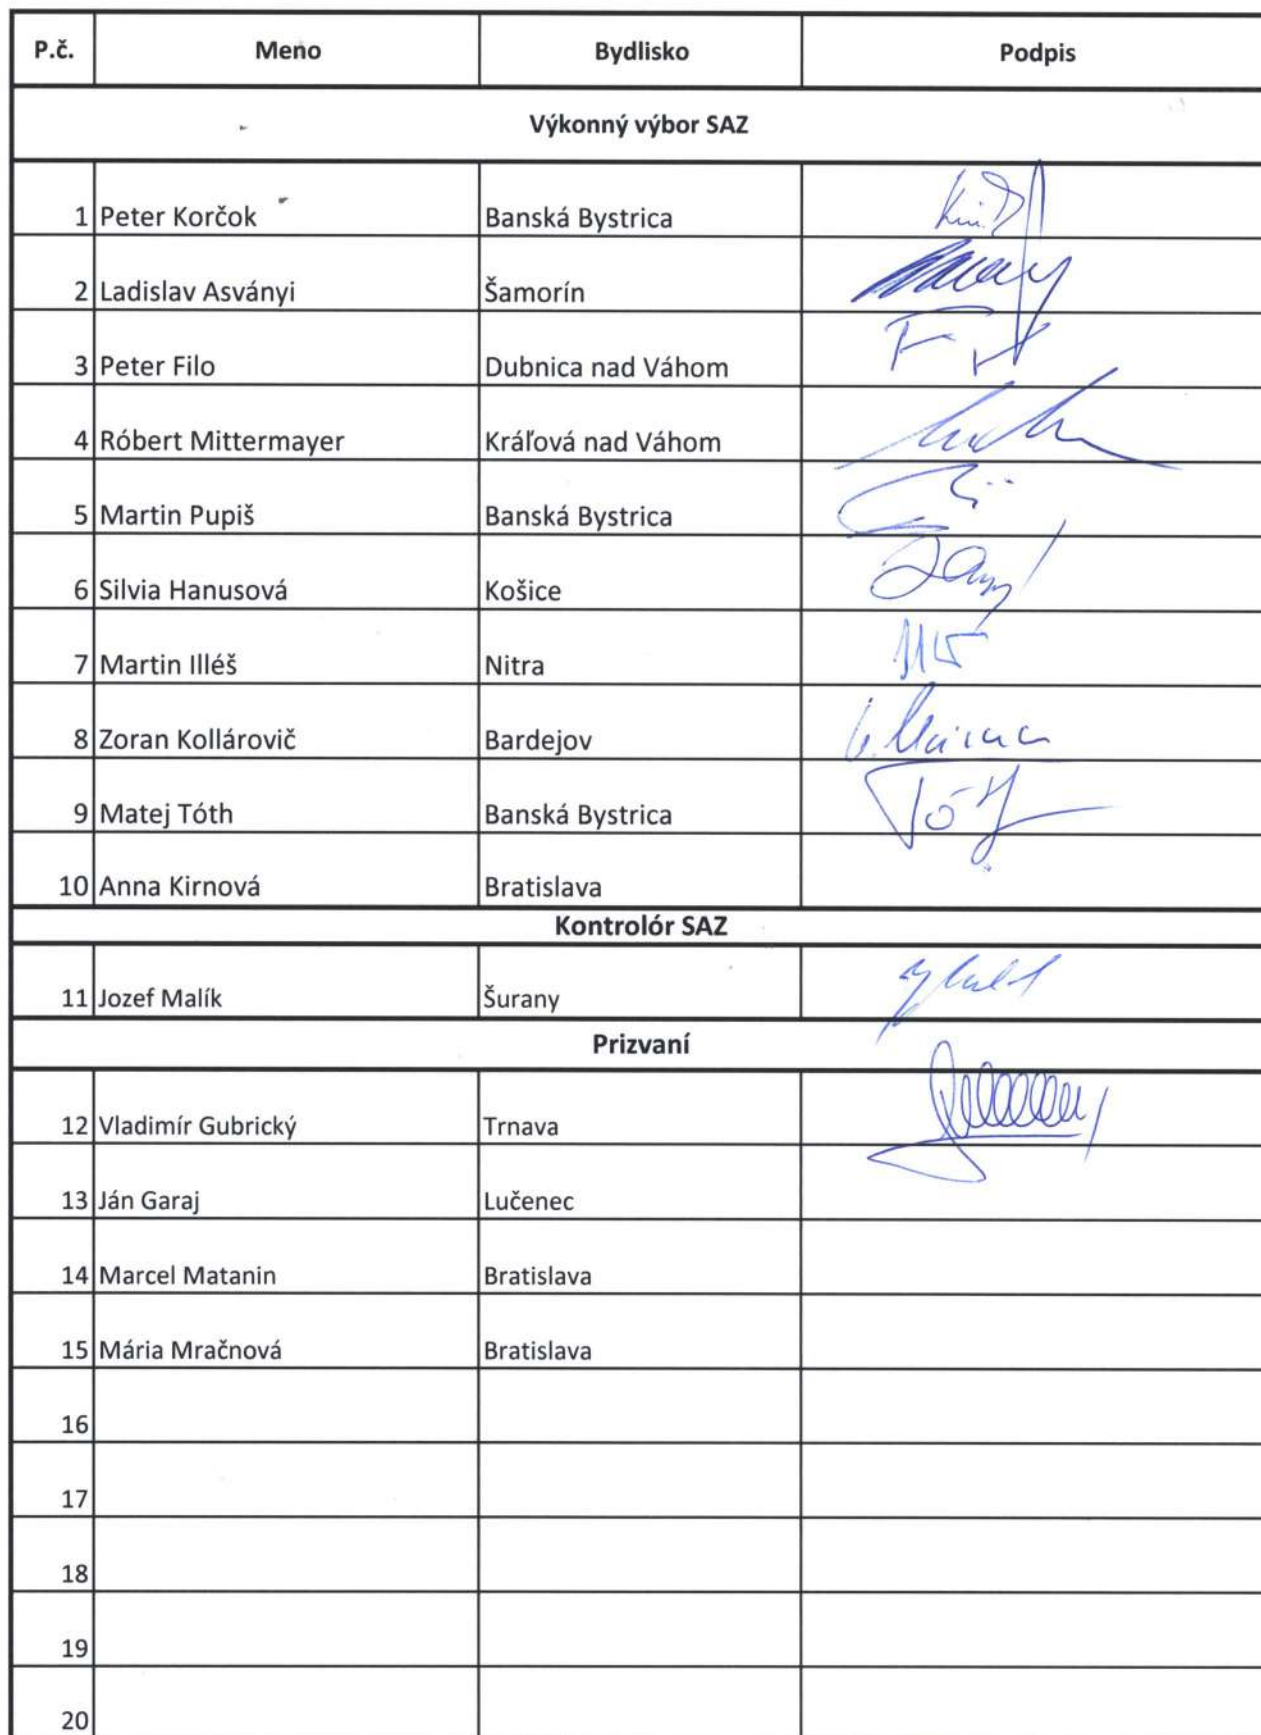 P.č. Meno Bydlisko Podpis
Výkonný výbor SAZ
1 Peter Korčok Banská Bystrica
2 Ladislav Asványi Šamorín
3 Peter Filo Dubnica nad Váhom
4 Róbert Mittermayer Kráľová nad Váhom
5 Martin Pupiš Banská Bystrica
6 Silvia Hanusová Košice
7 Martin Illéš Nitra
8 Zoran Kollárovič Bardejov
9 Matej Tóth Banská Bystrica Tóth
10 Anna Kirnová Bratislava
Kontrolór SAZ
11 Jozef Malík Šurany
Prizvaní
12 Vladimír Gubrický Trnava
13 Ján Garaj Lučenec
14 Marcel Matanin Bratislava
15 Mária Mračnová Bratislava
16
17
18
19
20